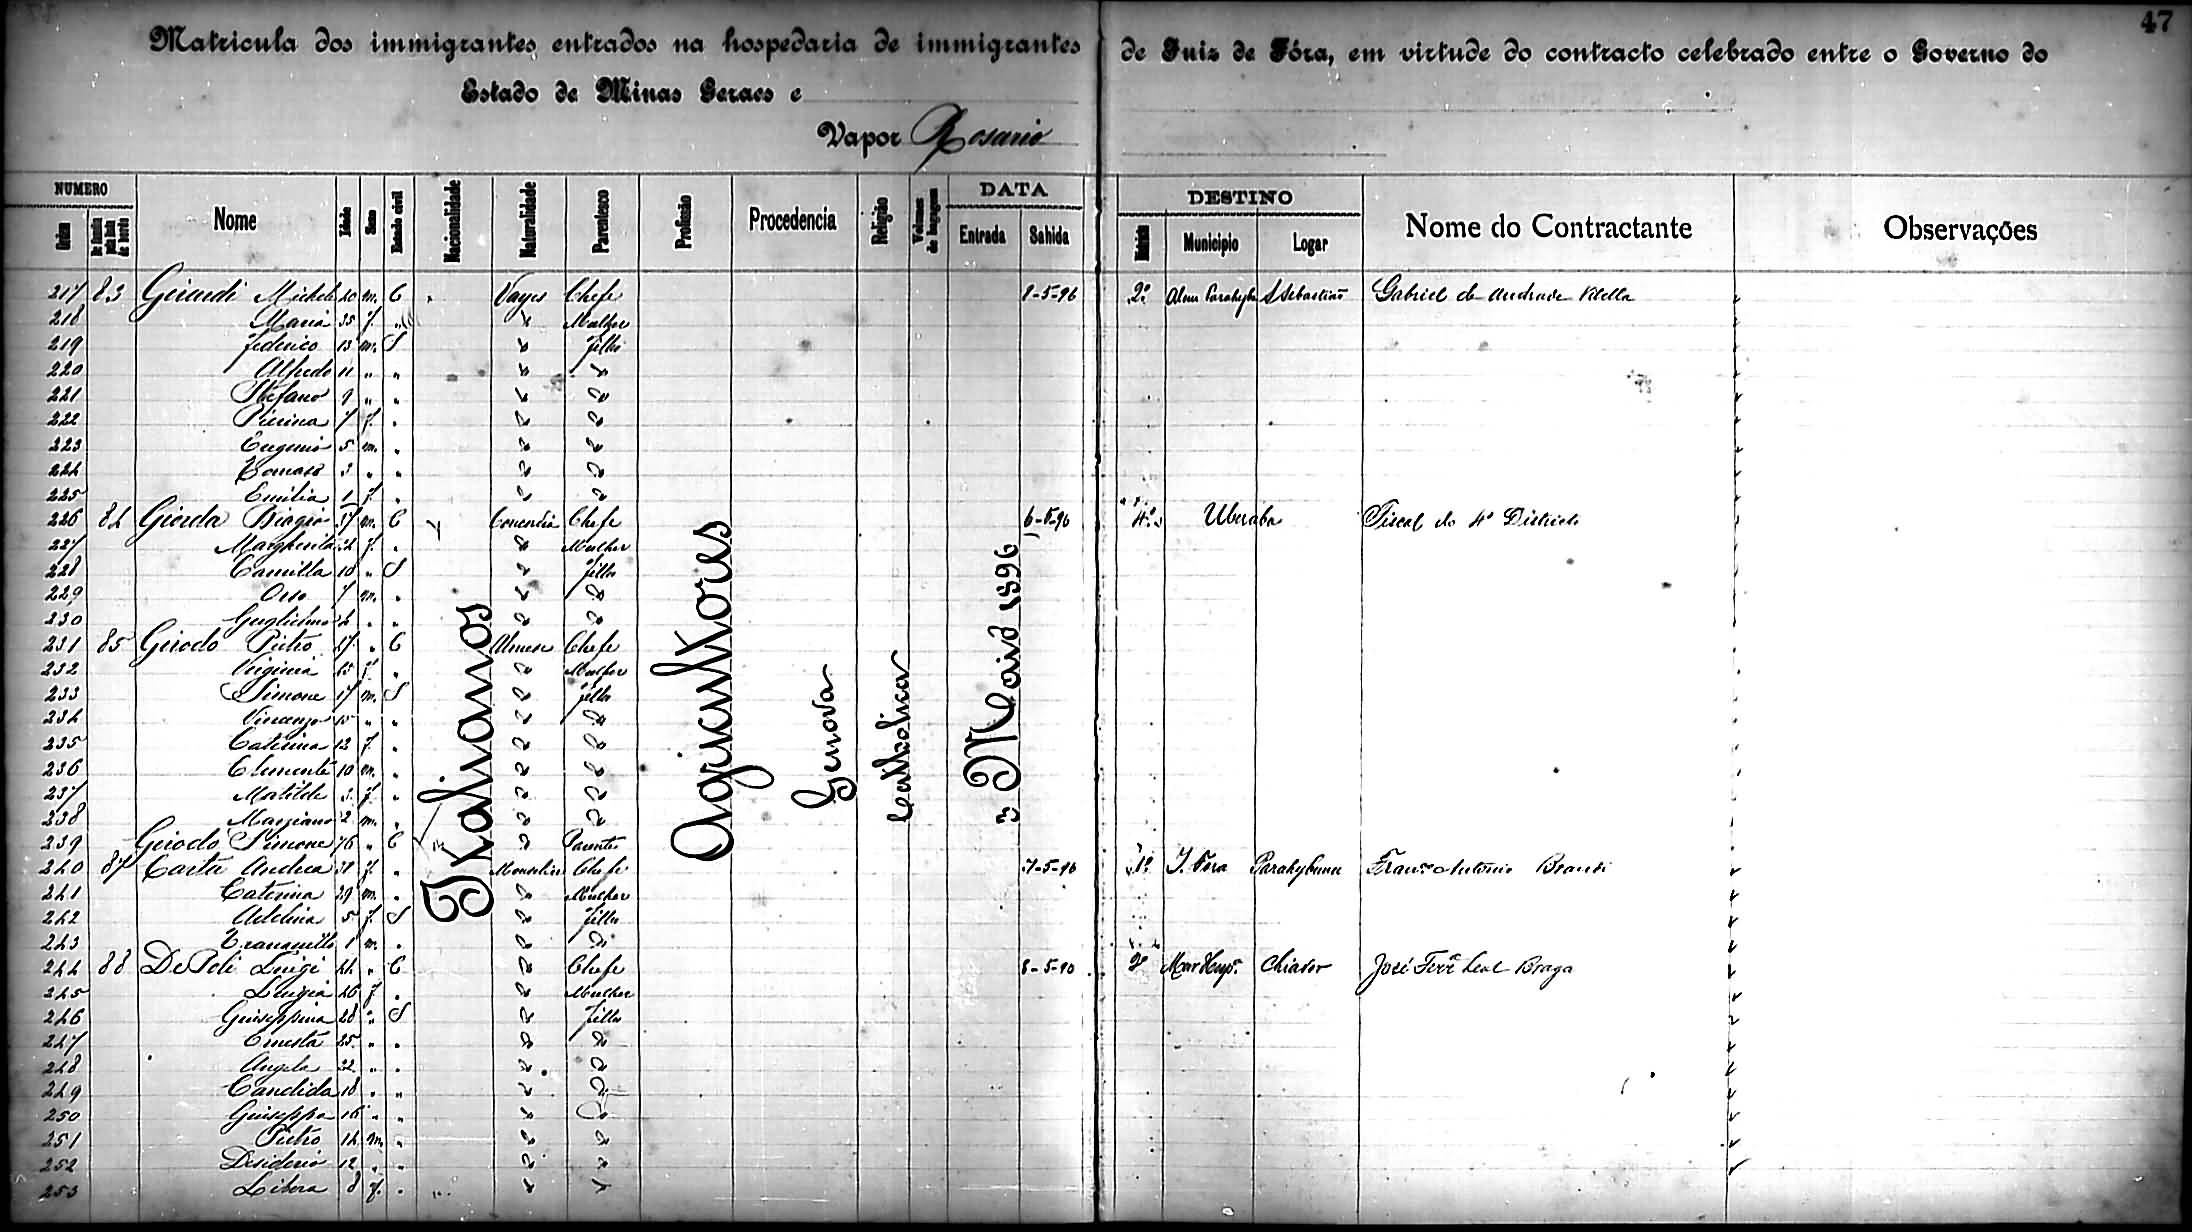 47
Matricula dos immigrantes entrados na hospedaria de immigrantes de Juiz de Fóra, em virtude do contracto celebrado entre o Governo do
Estado de Minas Geraes e
Vapor Rosario
NUMERO Nome Idade Sexo Estado civil Nacionalidade Naturalidade Parentesco Profissão Procedencia Religião Volumes de bagagem DATA DESTINO Nome do Contractante Observações
Ordem Entrada Sahida Districto Municipio Logar
Italianos Agricultores Genova Catholica 3 Maio 1896
217 83 Girardi Michele 40 m. C Chefe 8-5-96 2º Alem Parahyba S Sebastião Gabriel de Andrade Vilella
218 Maria 35 f. " " Mulher
219 Federico 13 m. S " filho
220 Alfredo 11 " " " "
221 Stefano 9 " " " "
222 Pierina 7 f. " " "
223 Eugenio 5 m. " " "
224 Tomaso 3 " " " "
225 Emilia 1 f. " " "
226 84 Giorda Biagio 37 m. C Chefe 6-5-96 4º Uberaba Fiscal do 4º Districto
227 Margherita f. " " Mulher
228 Camilla 10 " S " filha
229 7 m. " " "
230 Guglielmo 4 " " " "
231 85 Girodo Pietro 47 " C Almese Chefe
232 Virginia 45 f. " " Mulher
233 Simone 17 m. S " filho
234 Vincenzo 15 " " " "
235 Caterina 12 f. " " "
236 Clemente 10 m. " " "
237 Matilde 3 f. " " "
238 Marziano 2 m. " " "
239 Girodo Simone 76 " C " Parente
240 87 Andrea 31 f. " Chefe 7-5-96 1º J. Fora Parahybuna Franco Antonio Brandi
241 Caterina 29 m. " " Mulher
242 Adelina 5 f. S " filha
243 1 m. " " "
244 88 De Poli Luigi " C " Chefe 8-5-90 2º Mar Hespa. Chiador José Ferra. Leal Braga
245 Luigia 46 f " " Mulher
246 Guiseppina 28 " S " filha
247 Ernesta 25 " " " "
248 Angela 22 " " " "
249 Candida 18 " " " "
250 Guiseppa 16 " " " "
251 Pietro 14 m. " " "
252 Desiderio 12 " " " "
253 Libera 8 f. " " "